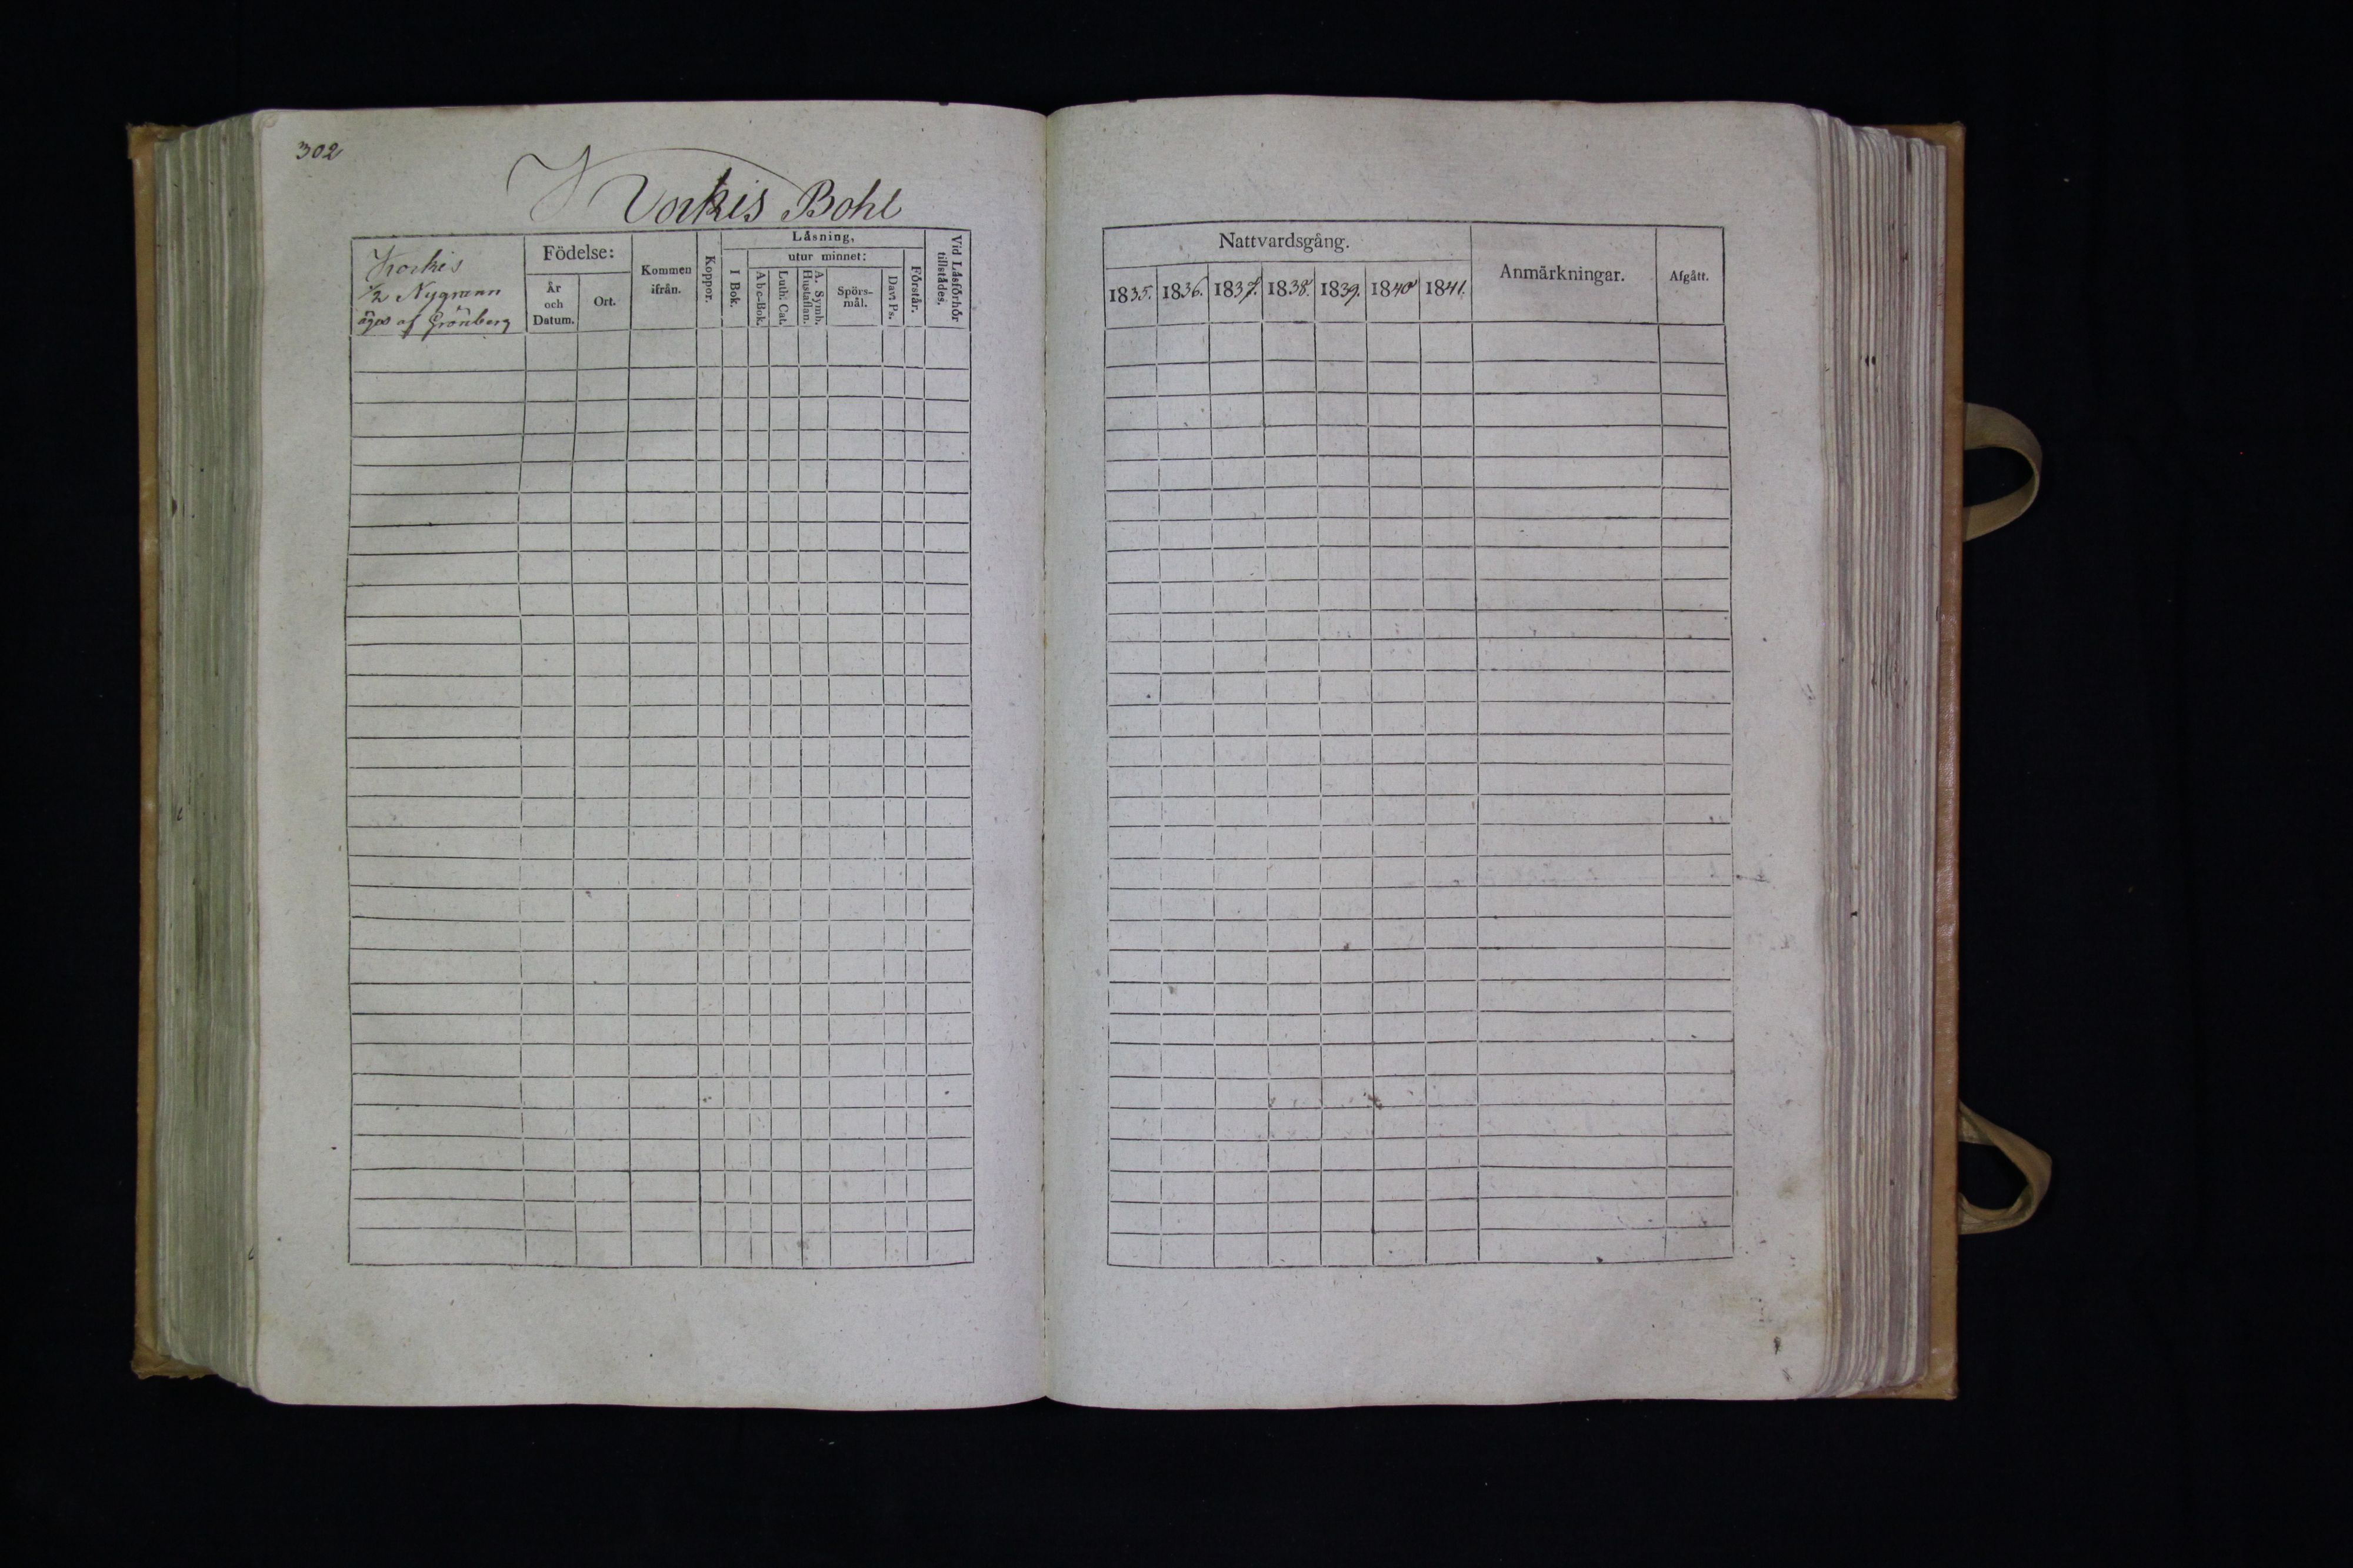 302
Korkis Bohl
Korkis
1/2 Nygrann
äges af Grönberg
Födelse:
År
och
Datum.
Ort.
Kommen
ifrån.
Koppor.
Läsning,
utur minnet:
I Bok.
Abc-Bok.
Luth: Cat.
A. Symb.
Hustaflan.
Spörs-
mål.
Dav: Ps.
Förstår.
Vid Läsförhör
tillstådes.
Nattvardsgång.
1835. 1836. 1837. 1838. 1839. 1840 1841.
Anmärkningar.
Afgått.